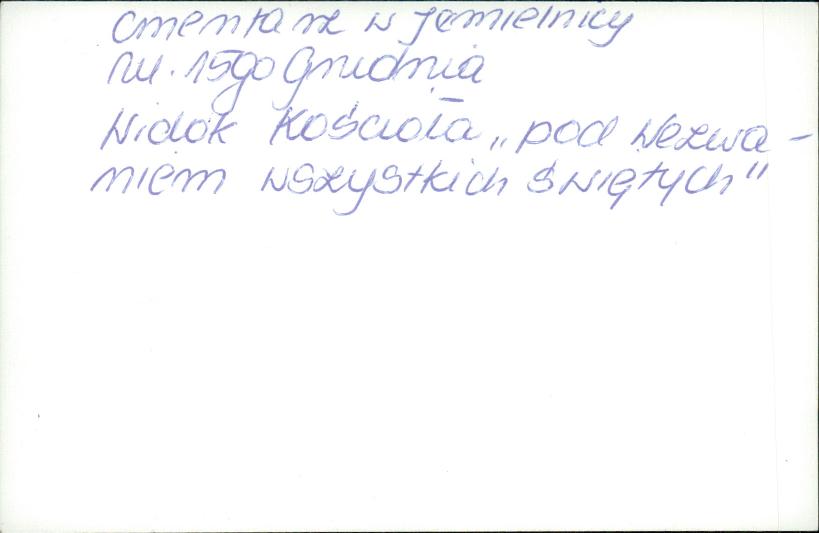 Cmentarz w Jemielnicy
ul. 15go Grudnia
Widok Kościoła „pod Wezwa-
niem wszystkich świętych"